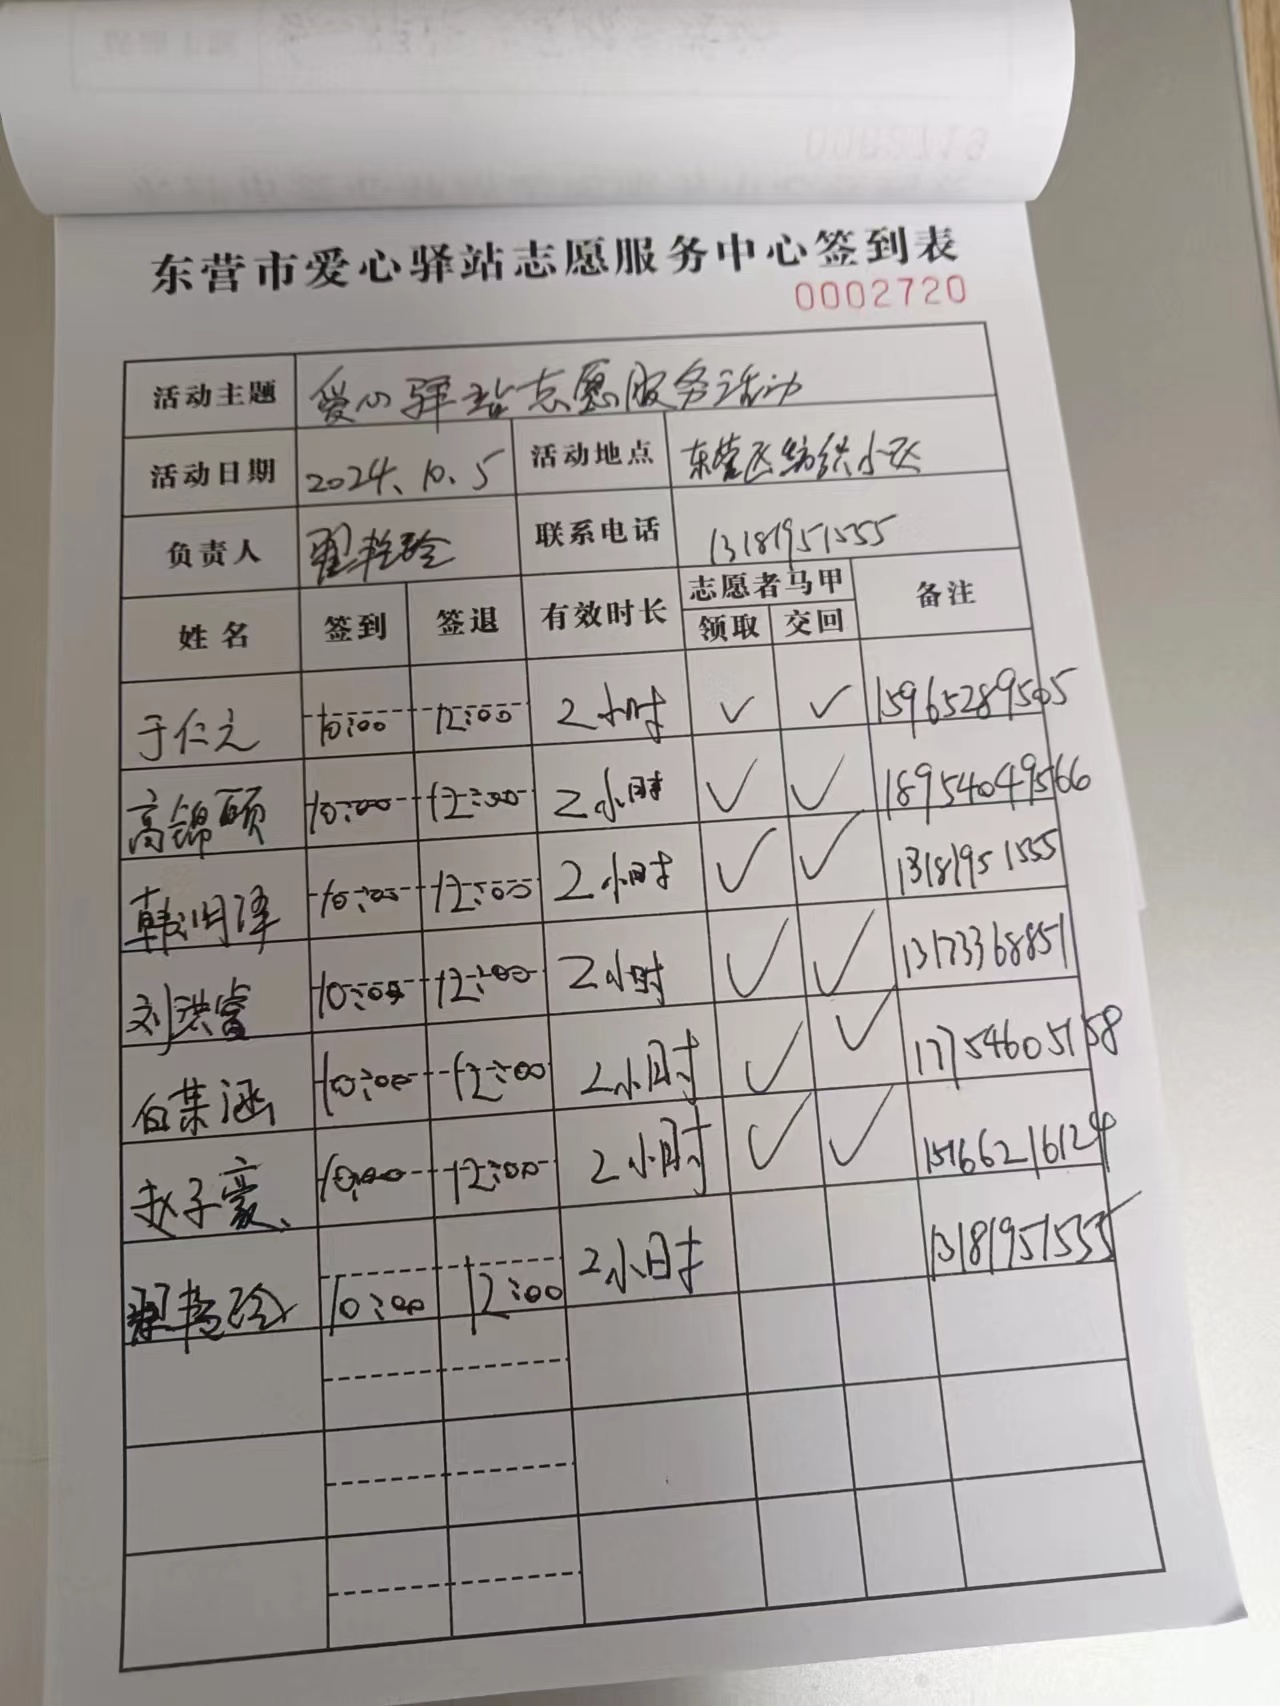 东营市爱心驿站志愿服务中心签到表
0002720
活动主题 爱心驿站志愿服务活动
活动日期 2024.10.5 活动地点 东营区纺织小区
负责人 翟艳玲 联系电话 13181951555
姓名 签到 签退 有效时长 志愿者马甲 备注
领取 交回
于仁元 10:00 12:00 2小时 ✓ ✓ 15965289505
高锦颐 10:00 12:00 2小时 ✓ ✓ 18954049566
韩润泽 10:00 12:00 2小时 ✓ ✓ 13181951555
刘洪睿 10:00 12:00 2小时 ✓ ✓ 13173368851
白集涵 10:00 12:00 2小时 ✓ ✓ 17754605158
赵子豪、 10:00 12:00 2小时 ✓ ✓ 15166216124
翟艳玲 10:00 12:00 2小时 13181951555